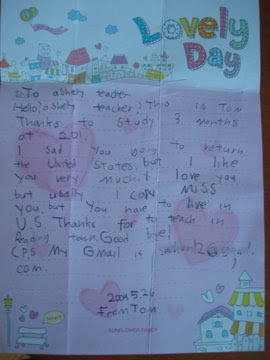 Lovely
Day
To ashely teacher
Hello? ashely teacher? This is Tom
Thanks to study 3 months
at 201.
I sad you going to return
the United States. but I like
you very much. I love you
but usally I can MISS
you but You have to live in
U.S. Thanks for to teach in
Reading town. Good bye!
CPS My Gmail is
com.
2009.5.26
From Tom